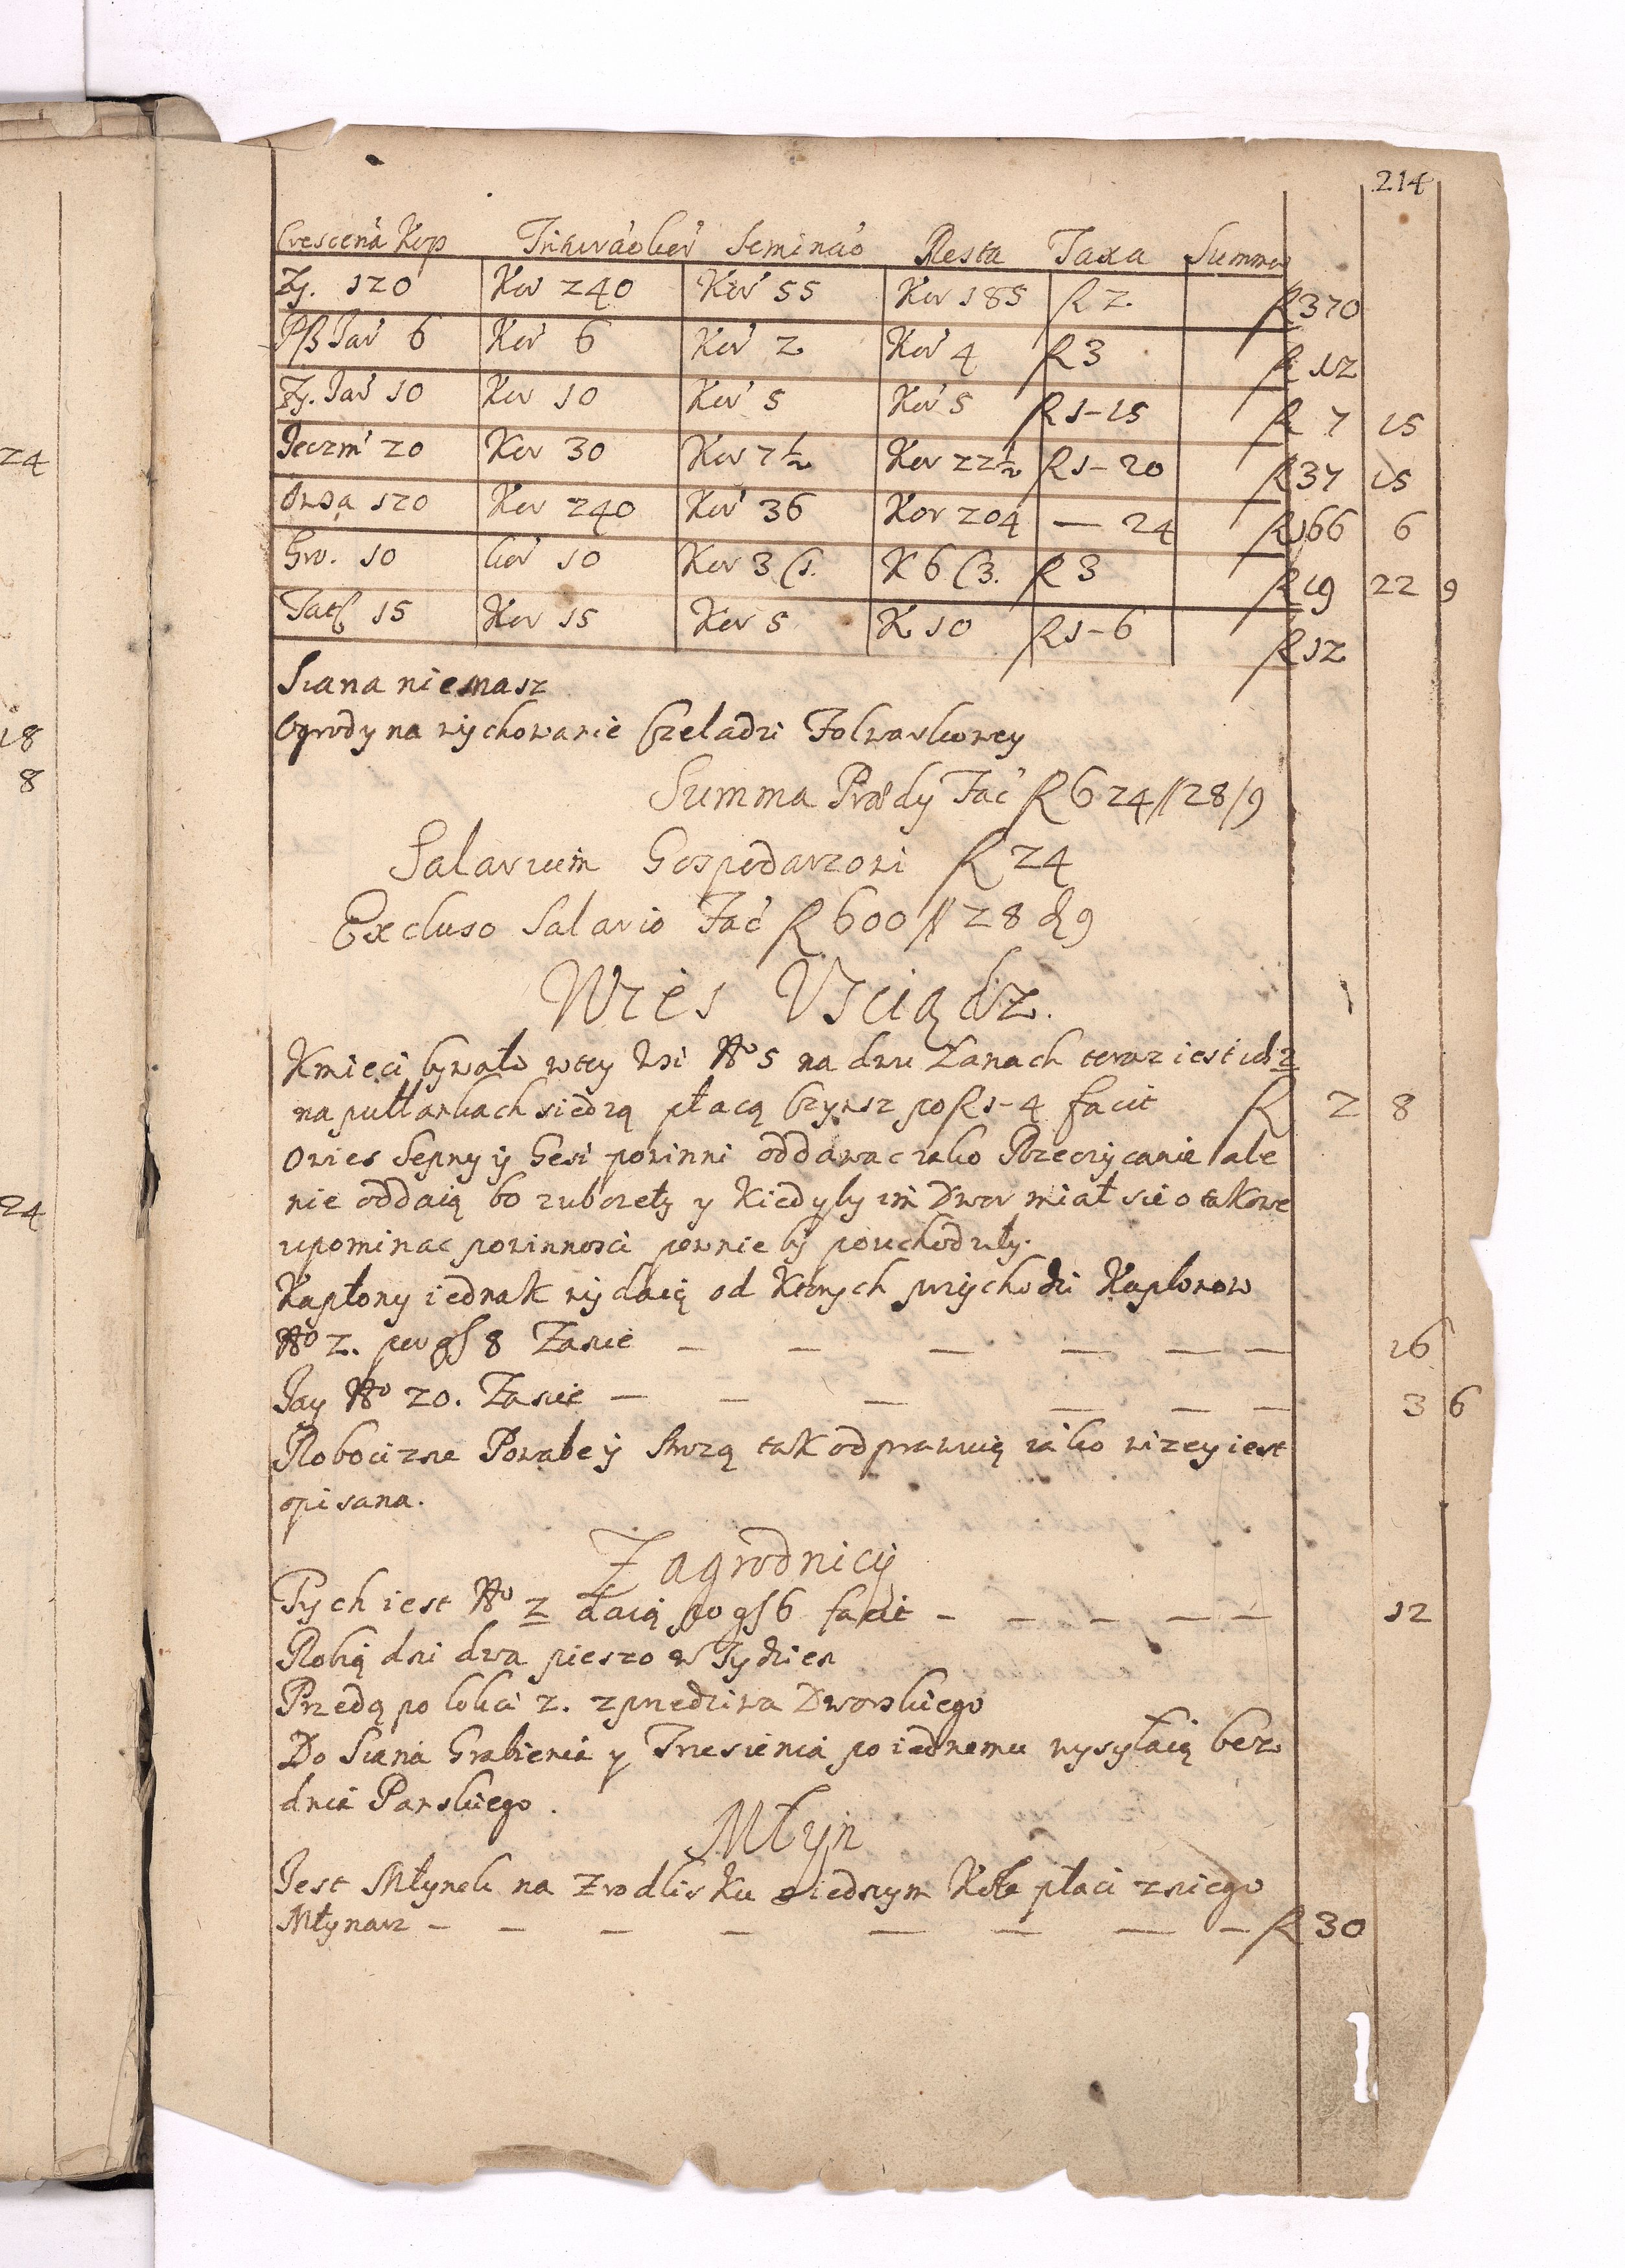 214
Crescená Kop Trituráo Cor Semináo Resta Taxa Summa
Zÿ. 120 Kor 240 Kor 55 Kor 185 R 2 R 370
Pß Jar 6 Kor 6 Kor 2 Kor 4 R 3 R 12
Zÿ. Jar 10 Kor 10 Kor 5 Kor 5 R 1-15 R 7 15
Jeczm 20 Kor 30 Kor 7½ Kor 22½ R 1-20 R 37 15
Owsa 120 Kor 240 Kor 36 Kor 204 — 24 R 166 6
Gro. 10 Cor 10 Kor 3 C1. K 6 C3. R 3 R 19 22 9
Tat 15 Kor 15 Kor 5 K 10 R 1-6 R 12
Siana niemasz
Ogrody na wychowanie Czeladzi Folwarkowey
Summa Prædÿ Fac R 624 // 28 / 9
Salarium Gospodarzowi R 24
Excluso Salario Fac R 600 // 28 d 9
Wies Usciądz.
Kmieci bywało wtey Wsi No 5 na dwu Łanach teraz iest ich 2
na pułłankach siedzą płacą Czynsz po R 1-4 facit R 2 8
Owies Sepny ÿ Gesi powinni oddawac iako Przeczÿcanie ale
nie oddaią bo zuborely y Kiedyby im Dwor miał sie o takowe
upominac powinnosci pewnie bÿ pouchodzily.
Kapłony iednak wydaią od Ktorych przÿchodzi Kaplonow
No 2. per gſ 8 Zasie — — — — — — 16
Jay No 20. Zasie — — — — — — 3 6
Robocizne Powabe ÿ Strozą tak odprawuią iako wizey iest
opisana.
Zagrodnicÿ
Tych iest No 2 daią po gſ 6 facit — — — — — 12
Robią dni dwa pieszo w Tydzien
Przedą po lokci 2. zprzedziwa Dworskiego
Do Siana Grabienia y Trzesienia po iednemu wysyłaią bez
dnia Panskiego.
Młyn
Jest Młynek na Zrodlisku o iednym Kole płaci zniego
Młynarz — — — — — — — — R 30
24
18
8
24